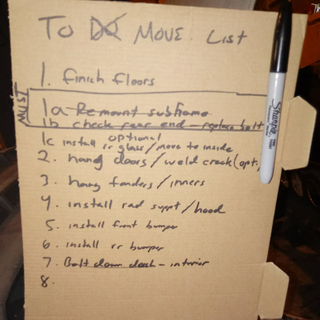 To Do Move List
1. finish floors
MUST
1a Remount subframe
1b check rear end - replace bolt
1c install optional
rr glass / move to inside
2. hang doors / weld crack (opt.)
3. hang fenders / inners
4. install rad suppt / hood
5. install front bumper
6. install rr bumper
7. Bolt down dash - interior
8.
Sharpie